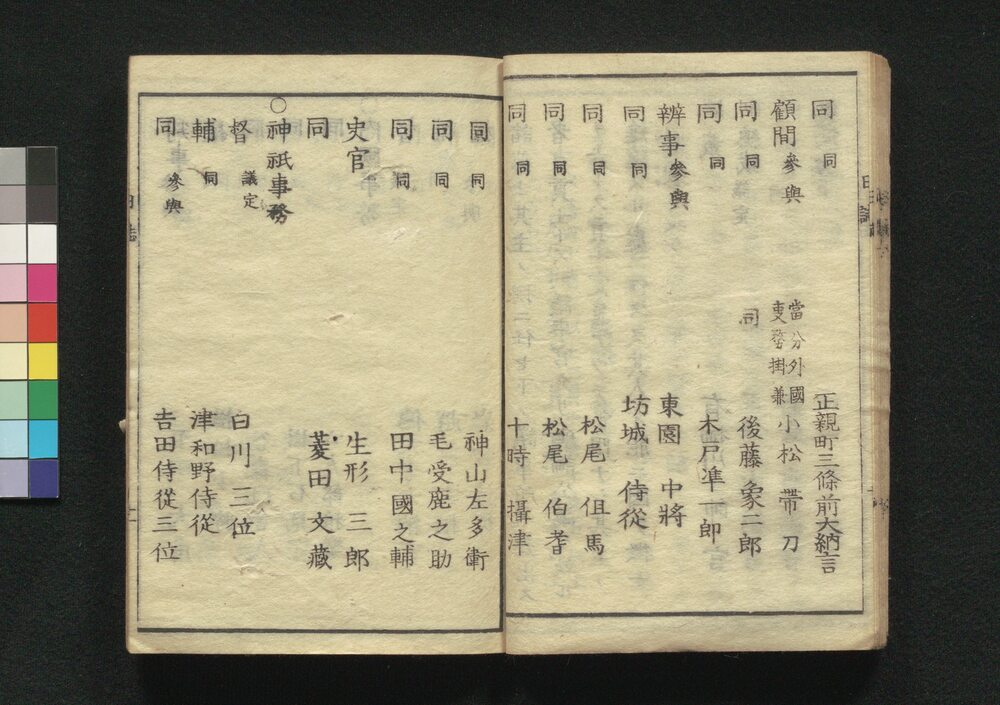 同 同 正親町三條前大納言
顧問 參與 當分外國事務掛兼 小松 帶刀
同 同 同 後藤 象二郎
同 同 木戸 準一郎
辨事 參與 東園 中將
同 同 坊城 侍從
同 同 松尾 但馬
同 同 松尾 伯耆
同 同 十時 攝津
同 同 神山左多衛
同 同 毛受鹿之助
同 同 田中國之輔
史官 生形 三郎
同 菱田 文藏
○神祇事務
督 議定 白川 三位
輔 同 津和野侍從
同 參與 吉田侍從三位